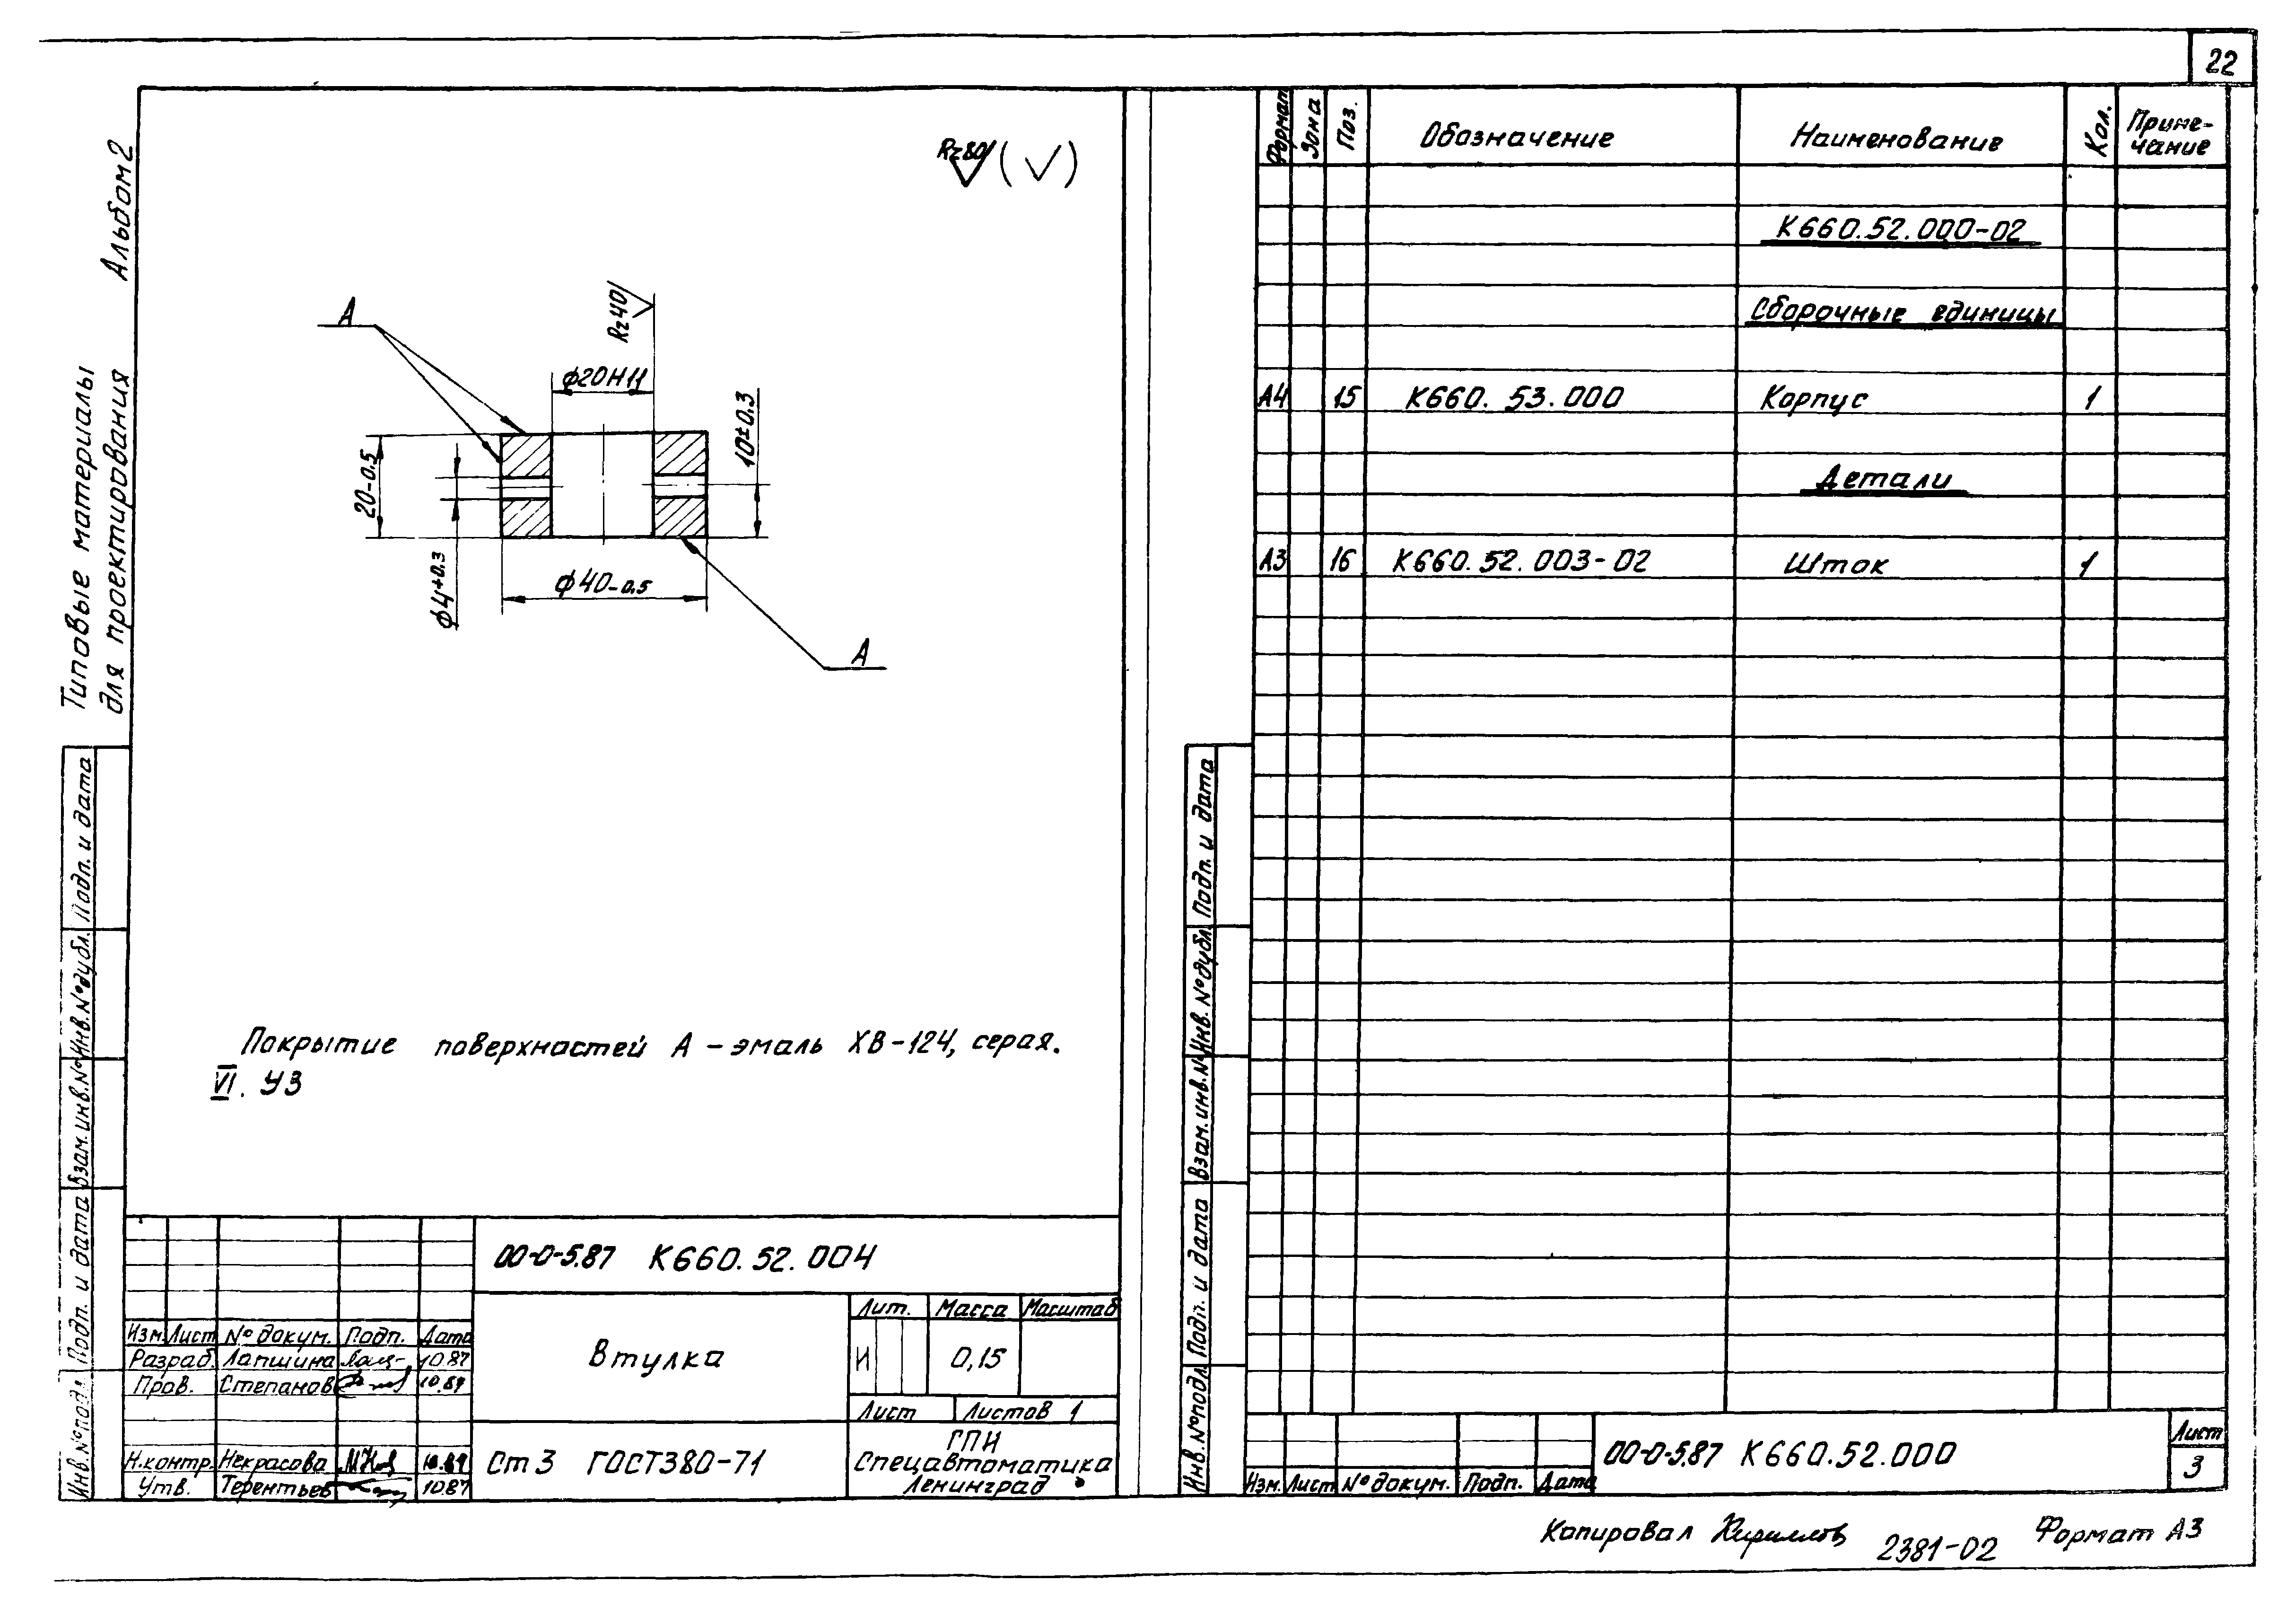 22
Типовые материалы
для проектирования Альбом 2
Rz80 (√)
А
Rz40
ϕ20Н11
20-0.5
10±0.3
ϕ4+0.3
ϕ40-0.5
А
Покрытие поверхностей А – эмаль ХВ-124, серая.
VI. У3
Подп. и дата
Инв.№дубл.
Взам.инв.№
Подп. и дата
Инв.№подл.
00-0-5.87 К660.52.004
Изм. Лист № докум. Подп. Дата
Разраб. Лапшина 10.87
Пров. Степанов
Н.контр. Некрасова
Утв. Терентьев 10.87
Втулка
Лит. Масса Масштаб
И 0,15
Лист Листов 1
Ст3 ГОСТ380-71
ГПИ
Спецавтоматика
Ленинград
Формат Зона Поз. Обозначение Наименование Кол. Приме-
чание
К660.52.000-02
Сборочные единицы
А4 15 К660.53.000 Корпус 1
Детали
А3 16 К660.52.003-02 Шток 1
Подп. и дата
Инв. №дубл.
Взам.инв.№
Подп. и дата
Инв.№подл.
00-0-5.87 К660.52.000
Изм. Лист № докум. Подп. Дата
Лист
3
Копировал 2381-02 Формат А3